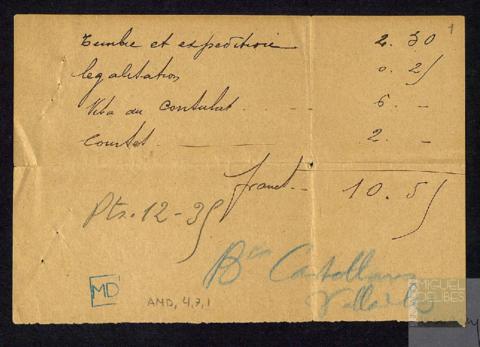 1
Timbre et expedition 2.30
legalisation 0.25
Visa du Consulat 6. -
Courtet 2. -
francs. - 10.55
Pts. 12-35
Bco Castellano
MD
AMD, 4,7,1
MIGUEL
DELIBES